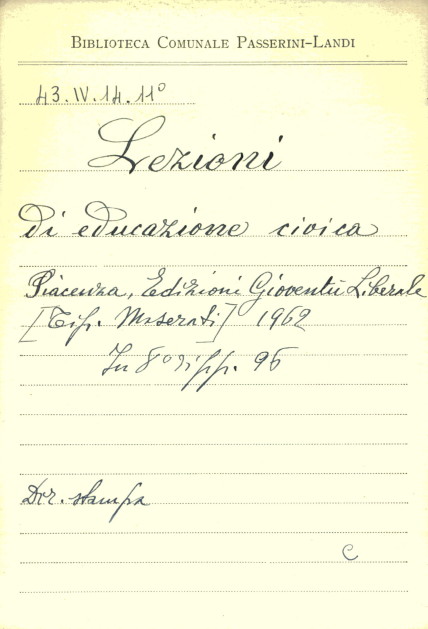 BIBLIOTECA COMUNALE PASSERINI-LANDI
43.IV.14.11°
Lezioni
di educazione civica
Piacenza, Edizioni Gioventù Liberale
[Tip. Maserati] 1962
In 8° pp. 96
Dir. stampa
C